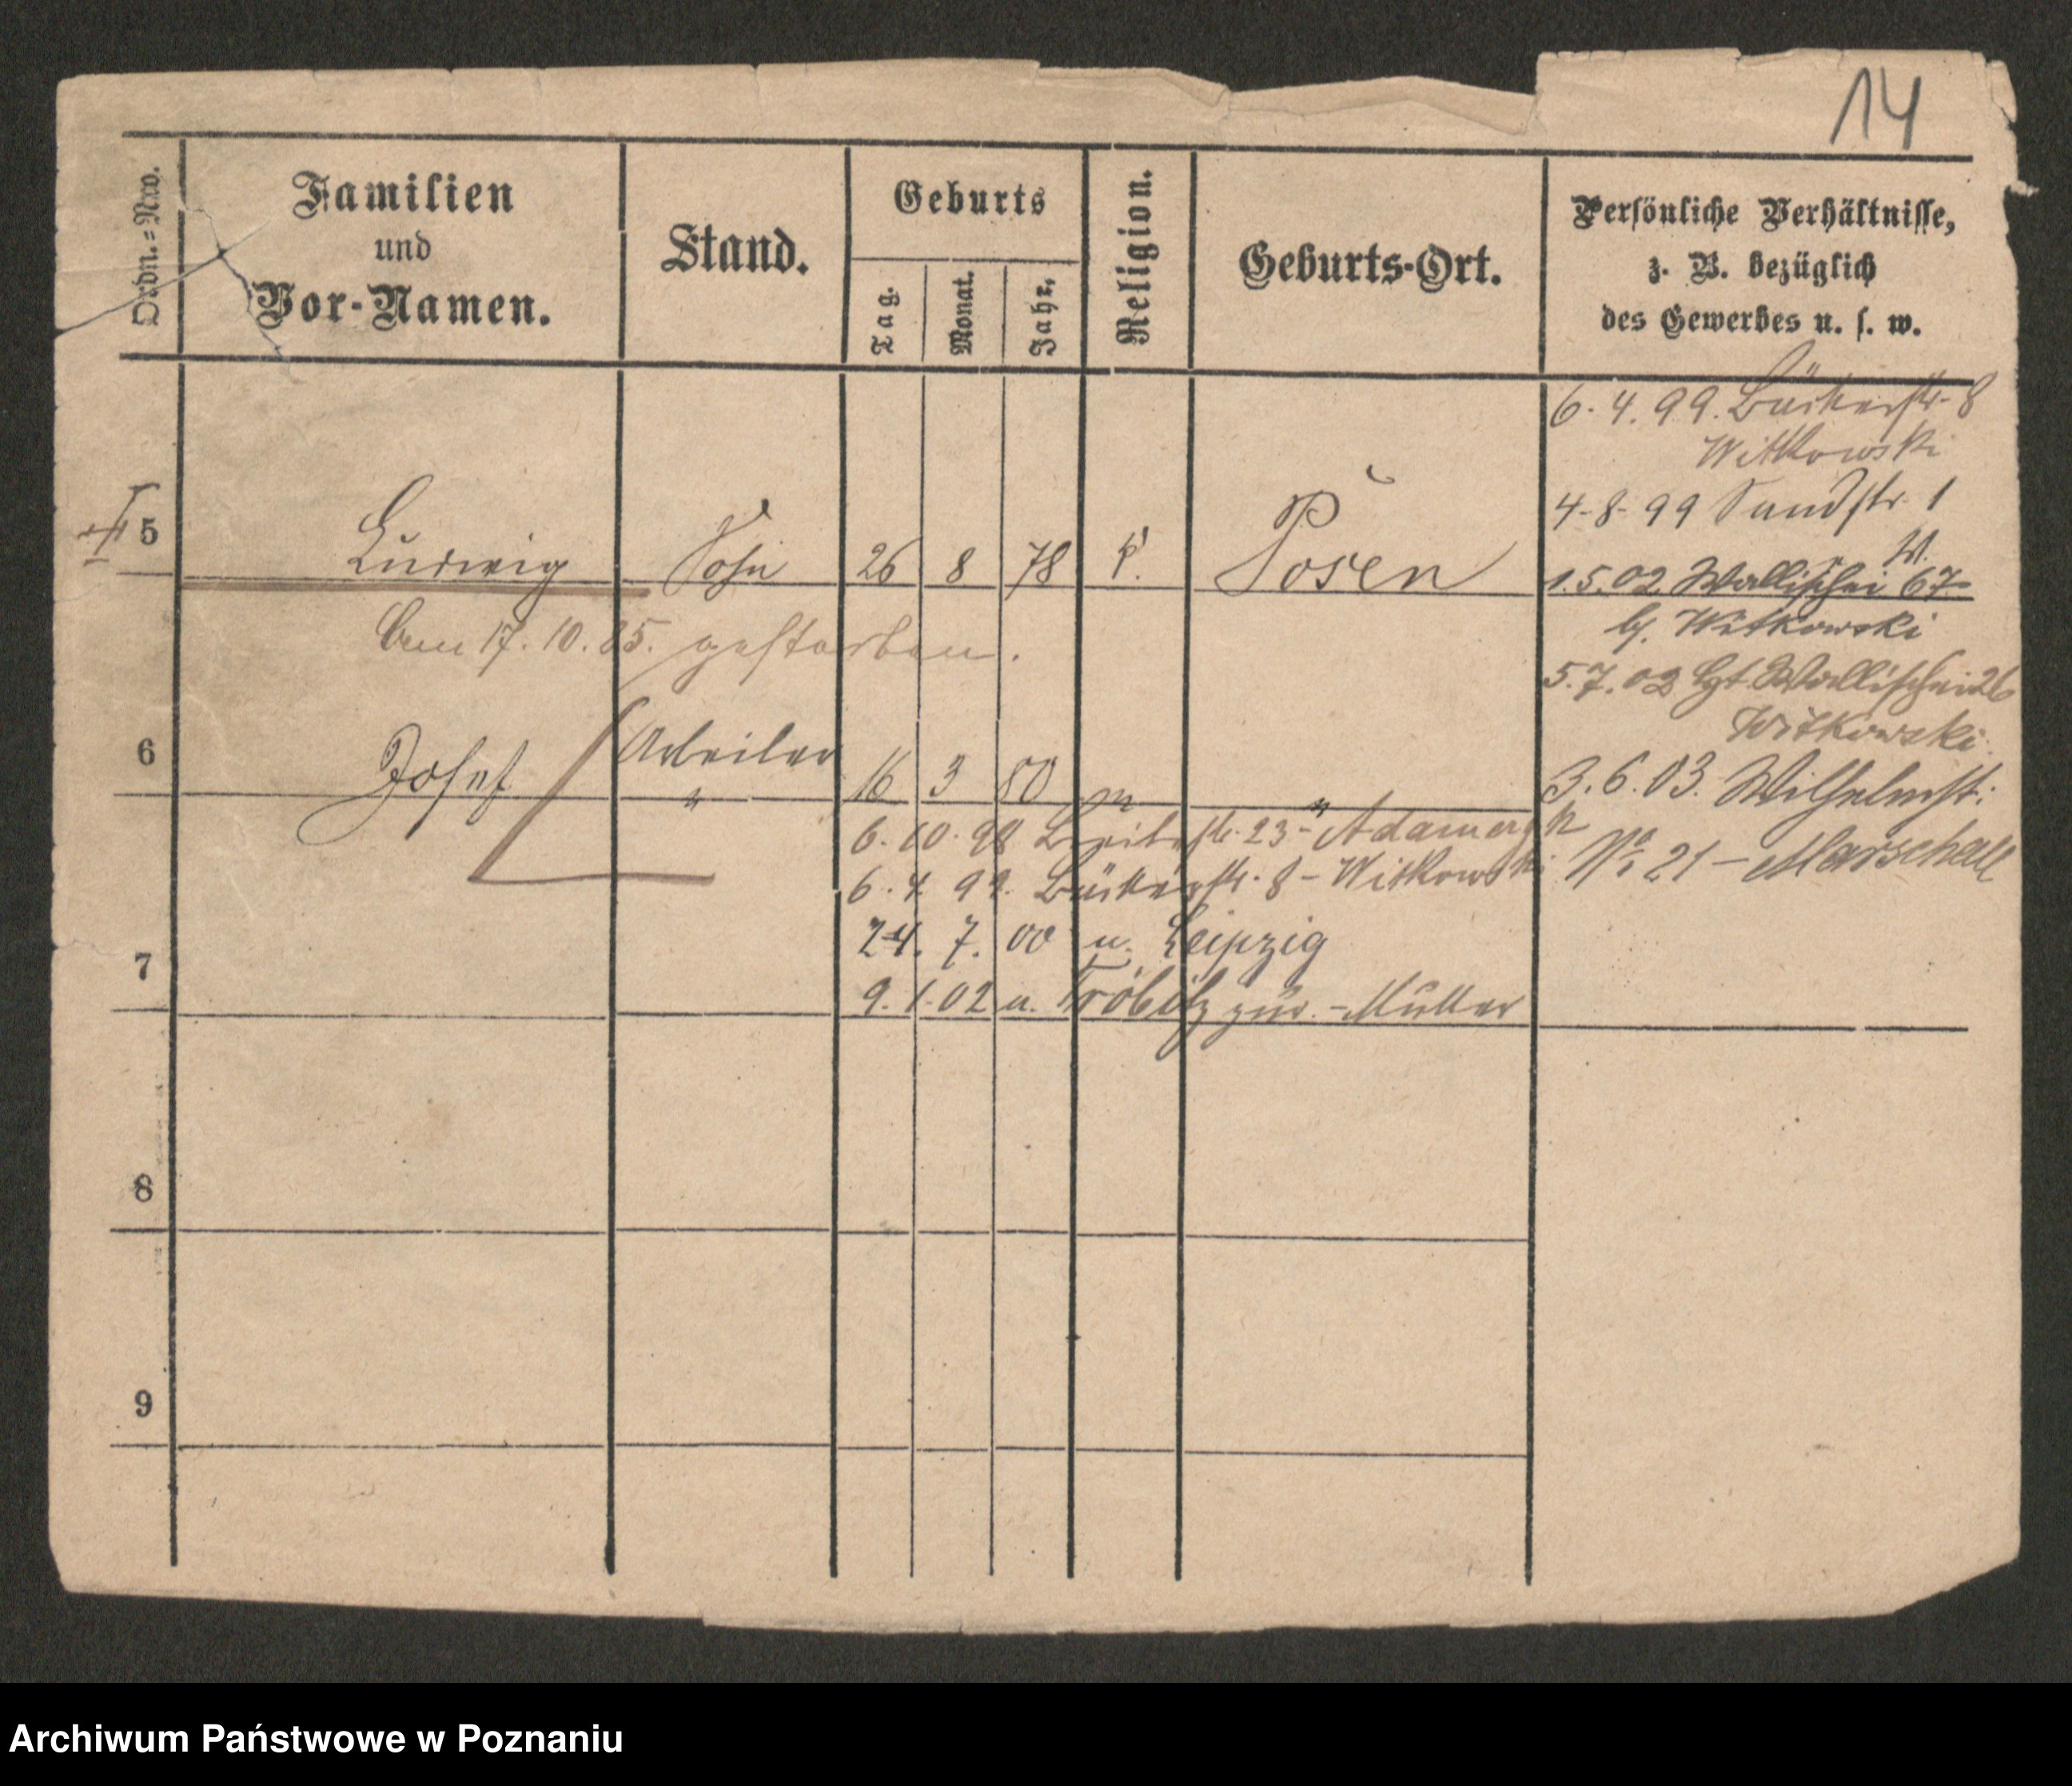 14
Ordn.=Nro.
Familien
und
Vor-Namen.
Stand.
Geburts
Tag.
Monat.
Jahr.
Religion.
Geburts-Ort.
Persönliche Verhältnisse,
z. B. bezüglich
des Gewerbes u. s. w.
6. 4. 99. Bäckerstr. 8
Witkowski
4. 8. 99 Sandstr. 1
W.
5 Ludwig Sohn 26 8 78 k. Posen
1. 5. 02. Wallischei 67
b/. Witkowski
Am 17. 10. 85. gestorben.
5. 7. 02 Wallischei 26
Witkowski.
6 Josef Arbeiter 16 3 80
" " "
3. 6. 03. Wilhelmstr:
No 21 - Marschall
6. 10. 98 Breitestr. 23 -
6. 4. 99. Bäckerstr. 8 - Witkowski
24. 7. 00 n. Leipzig
7
9. 1. 02 u. Tröbitz zur. - Mutter
8
9
Archiwum Państwowe w Poznaniu